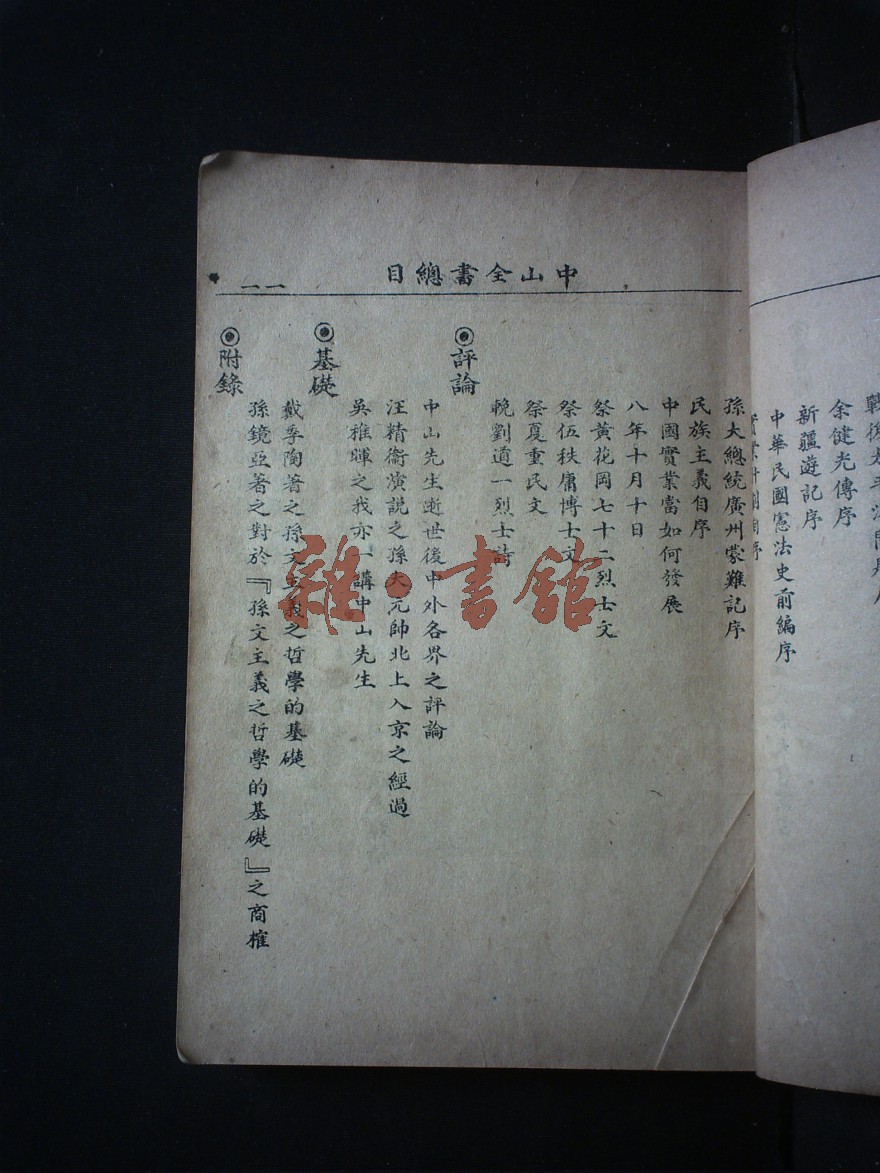 余健光傳序
新疆遊記序
中華民國憲法史前編序
中山全書總目
一一
孫大總統廣州蒙難記序
民族主義自序
中國實業當如何發展
八年十月十日
祭黃花岡七十二烈士文
祭伍秩庸博士文
祭夏重民文
輓劉道一烈士詩
◎評論
中山先生逝世後中外各界之評論
汪精衛演說之孫大元帥北上入京之經過
吳稚暉之我亦一講中山先生
◎基礎
戴季陶著之孫文主義之哲學的基礎
◎附錄
孫鏡亞著之對於『孫文主義之哲學的基礎』之商榷
雜·書館